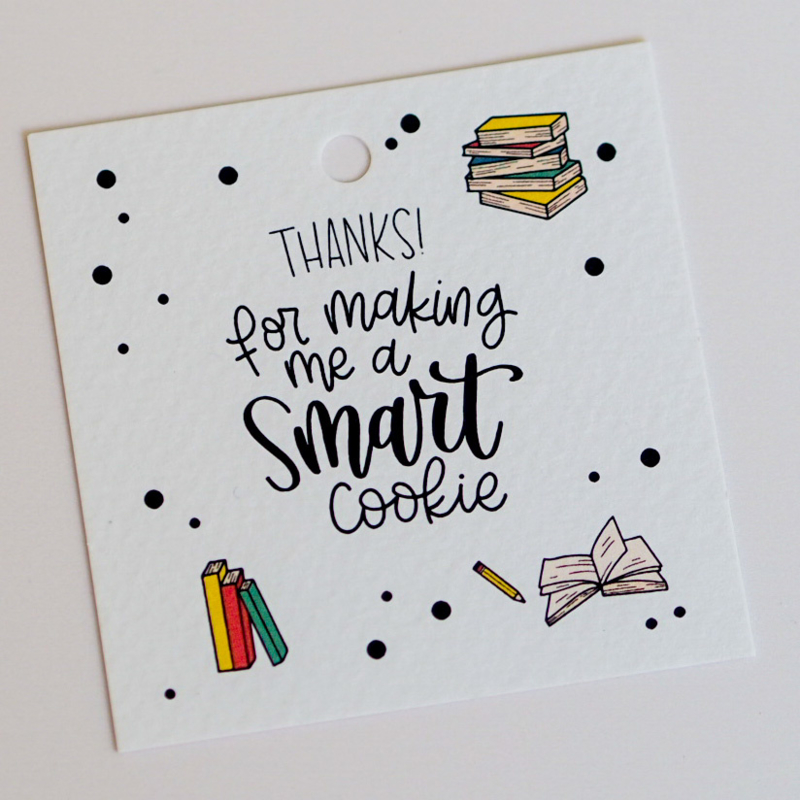 THANKS!
for making
me a
Smart
cookie